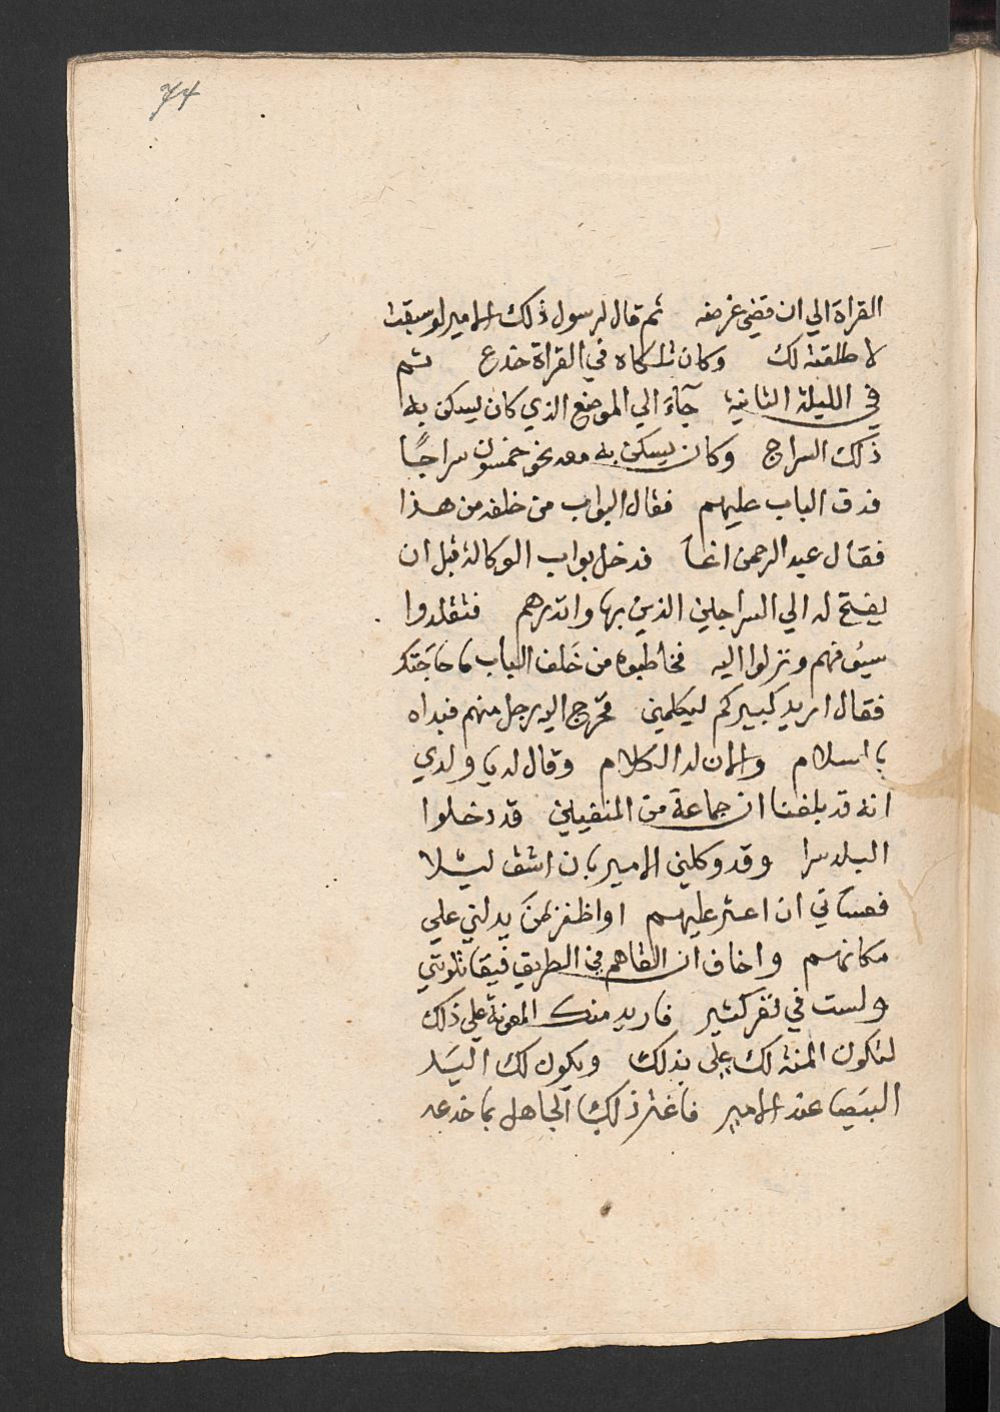 74
القراة الي ان قضي غرضه ثم قال لرسول ذلك الامير لو سبقت
لاطلقته لك وكان تلكاه في القراة خدع ثم
في الليلة الثانية جآء الي الموضع الذي كان يسكن به
ذلك السراج وكان يسكن به معه نحو خمسون سراجًا
فدق الباب عليهم فقال البواب من خلفه من هذا
فقال عبد الرحمن انما فدخل بواب الوكالة قبل ان
يفتح له الي السراجين الذين بها وانذرهم فتقلدوا
سيوفهم ونزلوا اليه فخاطبوه من خلف الباب ما حاجتكم
فقال اريد كبيركم ليكلمني فخرج اليه رجل منهم فبداه
باسلام والان له الكلام وقال له يا ولدي
انه قد بلغنا ان جماعة من المنفيين قد دخلوا
البلد سرا وقد وكلني الامير بان اشق ليلا
فعساني ان اعثر عليهم او اظفر بمن يدلني علي
مكانهم واخاف ان القاهم في الطريق فيقاتلونني
ولست في نفر كثير فاريد منك المعونة علي ذلك
لتكون المنة لك علي بذلك ويكون لك اليَد
البيَضا عند الامير فاغتر ذلك الجاهل بما خدعه